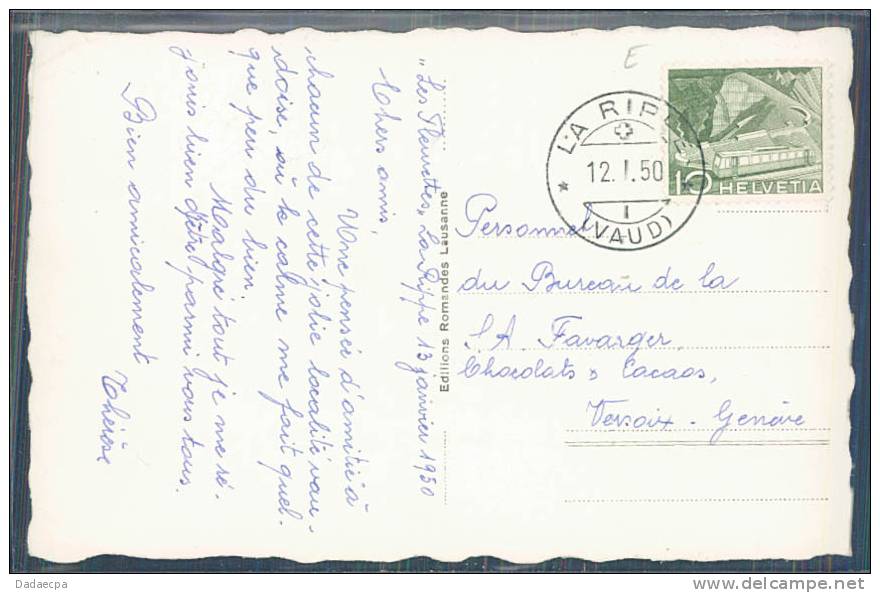 "Les Fleurettes" La Rippe 13 janvier 1950
Chers amis,
Une pensée d'amitié à
chacun de cette jolie localité vau-
doise, où le calme me fait quel-
que peu du bien.
Malgré tout je me ré-
jouis bien d'être parmi vous tous.
Bien amicalement
Thérèse
Editions Romandes Lausanne
E
LA RIPPE
12.I.50
1
(VAUD)
10 HELVETIA
Personnel
du Bureau de la
S.A. Favarger,
Chocolats & Cacaos,
Versoix - Genève
Dadaecpa
www.delcampe.net